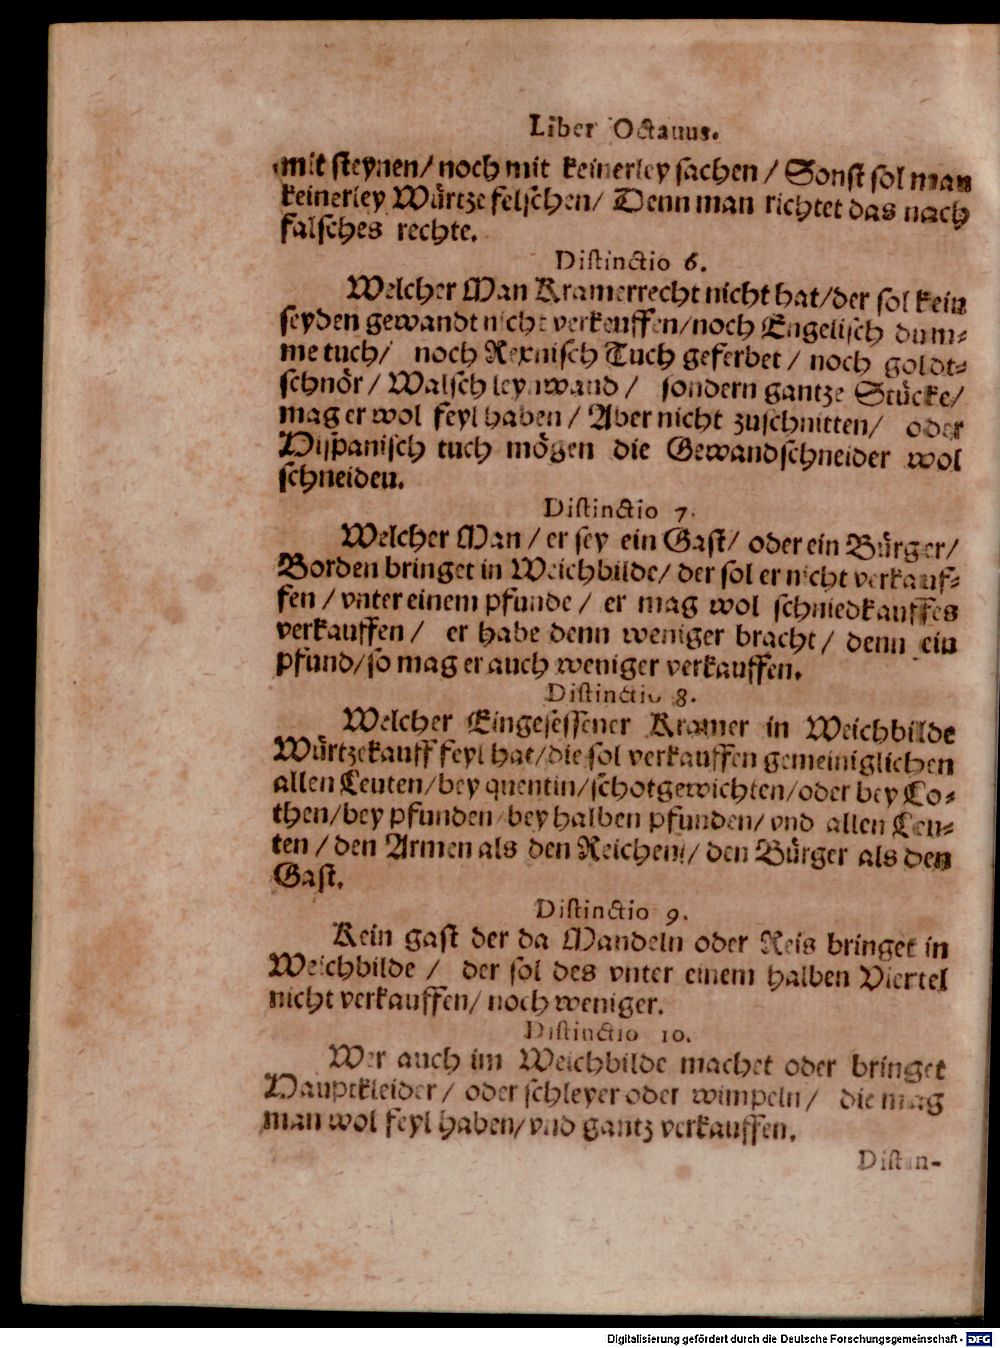 Liber Octauus.
mit steynen/ noch mit keinerley sachen / Sonst sol man
keinerley Würtze felschen/ Denn man richtet das nach
falsches rechte.
Distinctio 6.
Welcher Man Kramerrecht nicht hat/der sol kein
seyden gewandt nicht verkeuffen/noch Engelisch dum-
me tuch/ noch Rexnisch Tuch geferbet / noch goldt-
schnör / Walsch leynwand / sondern gantze Stücke/
mag er wol feyl haben / Aber nicht zuschnitten/ oder
Hispanisch tuch mögen die Gewandschneider wol
schneiden.
Distinctio 7.
Welcher Man / er sey ein Gast/ oder ein Bürger/
Borden bringet in Weichbilde/ der sol er nicht verkauf-
fen / vnter einem pfunde / er mag wol schniedkauffes
verkauffen / er habe denn weniger bracht / denn ein
pfund/so mag er auch weniger verkauffen.
Distinctio 8.
Welcher Eingesessener Kramer in Weichbilde
Würtzekauff feyl hat/die sol verkauffen gemeiniglichen
allen Leuten/bey quentin/schotgewichten/oder bey Lo-
then/bey pfunden/bey halben pfunden/ vnd allen Leu-
ten / den Armen als den Reichen/ den Bürger als den
Gast.
Distinctio 9.
Kein gast der da Mandeln oder Reis bringet in
Weichbilde / der sol des vnter einem halben Viertel
nicht verkauffen/ noch weniger.
Distinctio 10.
Wer auch im Weichbilde machet oder bringet
Hauptkleider / oder schleyer oder wimpeln / die mag
man wol feyl haben/vnd gantz verkauffen.
Distin-
Digitalisierung gefördert durch die Deutsche Forschungsgemeinschaft - DFG